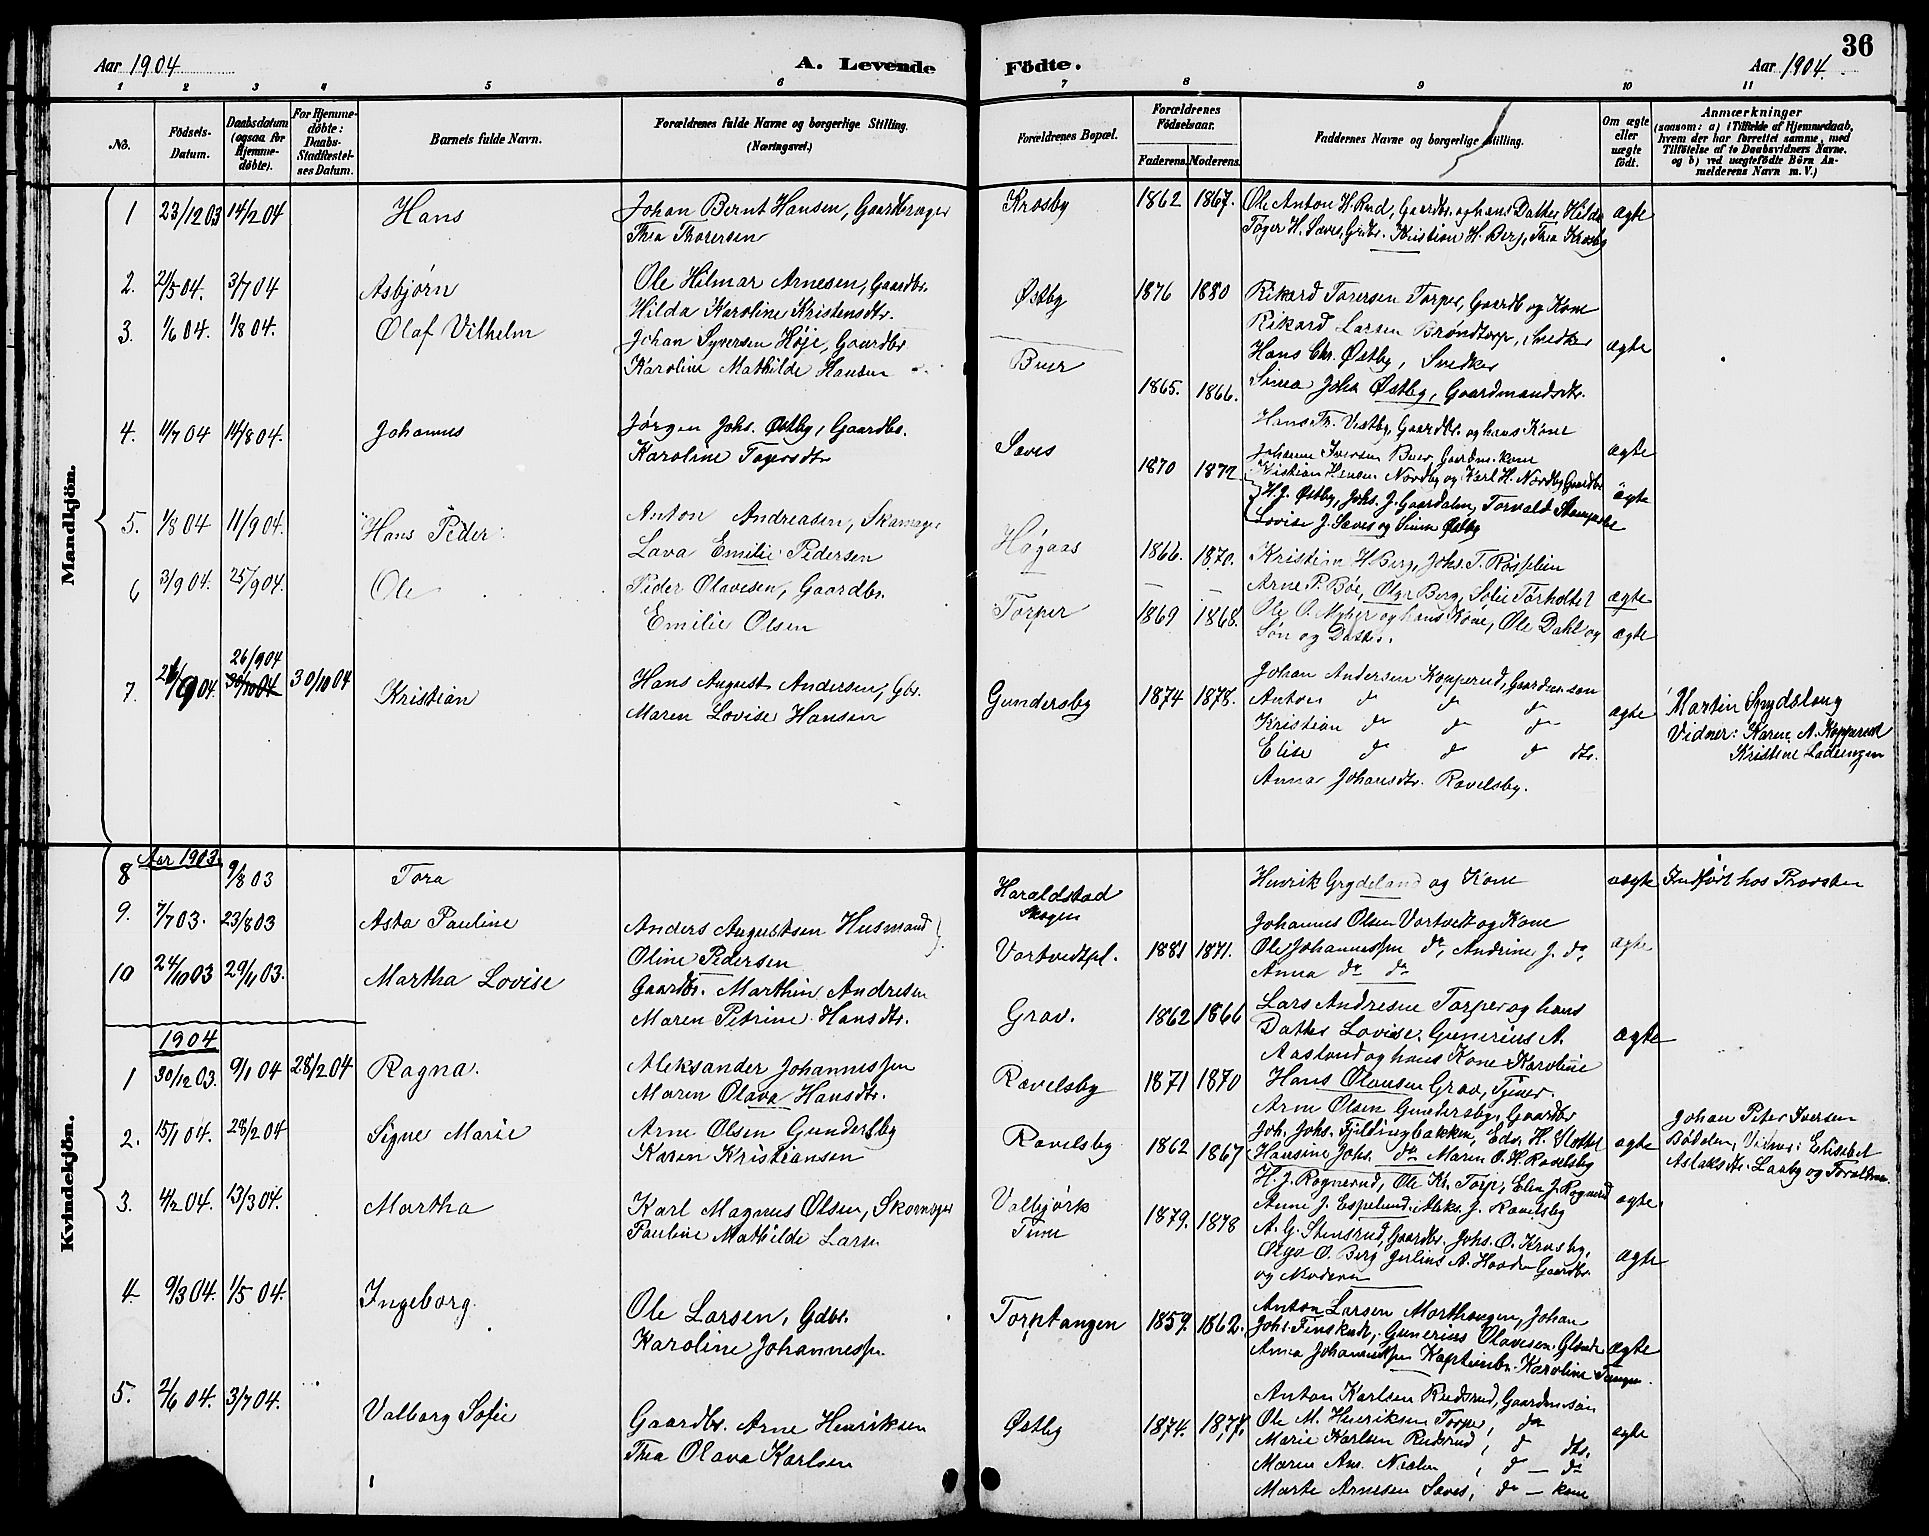 36
Aar 1904 A. Levende
Födte. Aar 1904.
1 2 3 4 5 6
7 8 9 10 11
No.
Födsels-Datum.
Daabsdatum (ogsaa for Hjemme-döbte).
For Hjemme-döbte: Daabs-Stadfæstel-ses Datum.
Barnets fulde Navn.
Forældrenes fulde Navne og borgerlige Stilling.
(Næringsvei.)
Forældrenes Bopæl.
Forældrenes Födselsaar.
Faderens. Moderens.
Faddernes Navne og borgerlige Stilling.
Om ægte eller uægte födt.
Anmærkninger
(saasom: a) i Tilfælde af Hjemmedaab,
hvem der har forrettet samme, med
Tilföielse af to Daabsvidners Navne.
og b) ved uægtefödte Börn An-
melderens Navn m. V.)
Mandkjön.
1 23/12 03 14/2 04 Hans Johan Bernt Hansen, Gaardbruger Krosby 1862 1867. Ole Anton H. Rud, Gaardbr. og hans Datter Hilda ægte
Thea Thorersen Tøger H. Saves, Grdbr. Kristian H. Berg, Thea Krosby
2. 21/5 04. 3/7 04 Asbjörn Ole Hilmar Arnesen, Gaardbr. Østby 1876 1880 Rikard Torersen Torper, Gaardb og Kone
Hilda Karoline Kristensdtr. Rikard Larsen Bröndtorp, Snedker
3. 1/6 04. 1/8 04. Olaf Vilhelm Johan Syversen Høje, Gaardbr Buer 1865. 1866. Hans Chr. Østby, Snedker ægte
Karoline Mathilde Hansen Sina Joha Østby, Gaardmandsdtr.
4. 11/7 04 14/8 04. Johannes Jørgen Johs. Østby, Gaardbr. Saves 1870 1872 Hans Th. Vestby, Gaardbr. og hans Kone ægte
Karoline Togersdtr Johanne Iversen Buer, Gaardm. kone
Kristian Hansen Nordby og Karl H. Nordby Gaardbr ægte
H. J. Østby, Johs. J. Gaardalen, Torvald
Lovise J. Saves og Østby
5. 1/8 04 11/9 04. Hans Peder Anton Andreasen, Skomager Høgaas 1866. 1870. Kristian H Berg, Johs. T.
Lava Emilie Pedersen Arne P. Bøe, Olga Berg, Sofie ægte
6 3/9 04. 25/9 04. Ole Peder Olavesen, Gaardbr. Torper 1869 1868. Ole O. og hans Kone, Ole Dahl og ægte
Emilie Olsen Søn og Datter.
7. 9 04. 26/9 04 30/10 04 30/10 04 Kristian Hans August Andersen, Gbr. Gundersby 1874 1878. Johan Andersen Kopperud, Gaardm. søn ægte Martin Spydslaug
Maren Lovise Hansen Anton do do do Vidner: Karen A. Kopperud
Kristian do do do Kristine
Elise do do do dtr.
Anna Johansdtr. Ravelsby.
Kvindekjön.
Aar 1903
8 9/8 03 Tora Haraldstad Skogen Henrik Grydeland og Kone uægte Indført hos Provsten
9. 7/7 03. 23/8 03 Asta Pauline Anders Augustsen Husmand Vortvedtpl. 1881 1871. Johannes Olsen Vortvedt og Kone ægte
Oline Pedersen Ole Johannessen do, Andrine J. do,
Anna do do
10 24/10 03 29/11 03. Martha Lovise Gaardbr. Marthin Andresen Grav. 1862 1866 Lars Andresen Torper og hans ægte
Maren Petrine Hansdtr. Datter Lovise. Gunerius A.
Aaslund og hans Kone Karoline
1904
1 30/12 03. 9/1 04 28/2 04 Ragna. Aleksander Johannessen Ravelsby 1871 1870 Hans Olausen Grav, Tjener.
Maren Olava Hansdtr. Arne Olsen Gundersby, Gaardbr
2. 15/1 04. 28/2 04 Signe Marie Arne Olsen Gundersby Ravelsby 1862 1867 Joh. Johs. Fjeldringbakken, Edv. H. ægte Johan Peter Iversen
Karen Kristiansen Hansine Johs. do Maren O. H. Ravelsby Vidner: Elisabet
H. J. Rognerud, Ole Kr. Torp, Elen J. Rognerud Aslaksdtr. Laaby og
3. 4/2 04. 13/3 04. Martha Karl Magnus Olsen, Skomager Valbjörk Tune 1879. 1878 Anne J. Espelund. Aleks. J. Ravelsby ægte.
Pauline Mathilde Larsen A. G. Stensrud, Gaardbr. Johs. O. Krosby.
Olga O. Berg Julius A. Gaardbr. ægte
og Moderen
4. 9/3 04. 1/5 04. Ingeborg. Ole Larsen, Gdbr. Torptangen 1859. 1862. Anton Larsen Morthaugen, Johan
Karoline Johannessen Johs. Gunerius Olavesen ægte
Anna Johannessen Karoline Tangen.
5. 2/6 04. 3/7 04. Valborg Sofie Gaardbr. Arne Henriksen Østby 1874. 1877. Anton Karlsen Rudsrud, Gaardm. søn
Thea Olava Karlsen Ole M. Henriksen Torper, do ægte
Marie Karlsen Rudsrud, do dtr.
Maren An. Næslen, do do
Marte Arnesen Saves, do kone